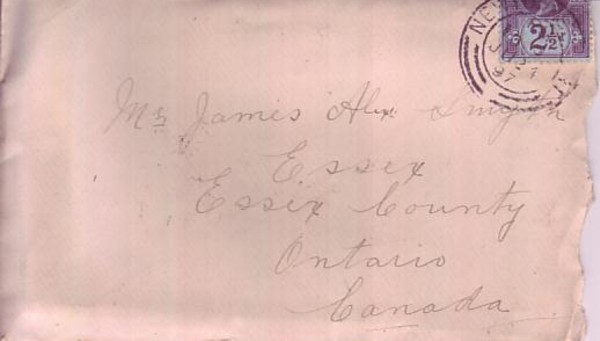 2½
97
Mr James Alex Smyth
Essex
Essex County
Ontario
Canada